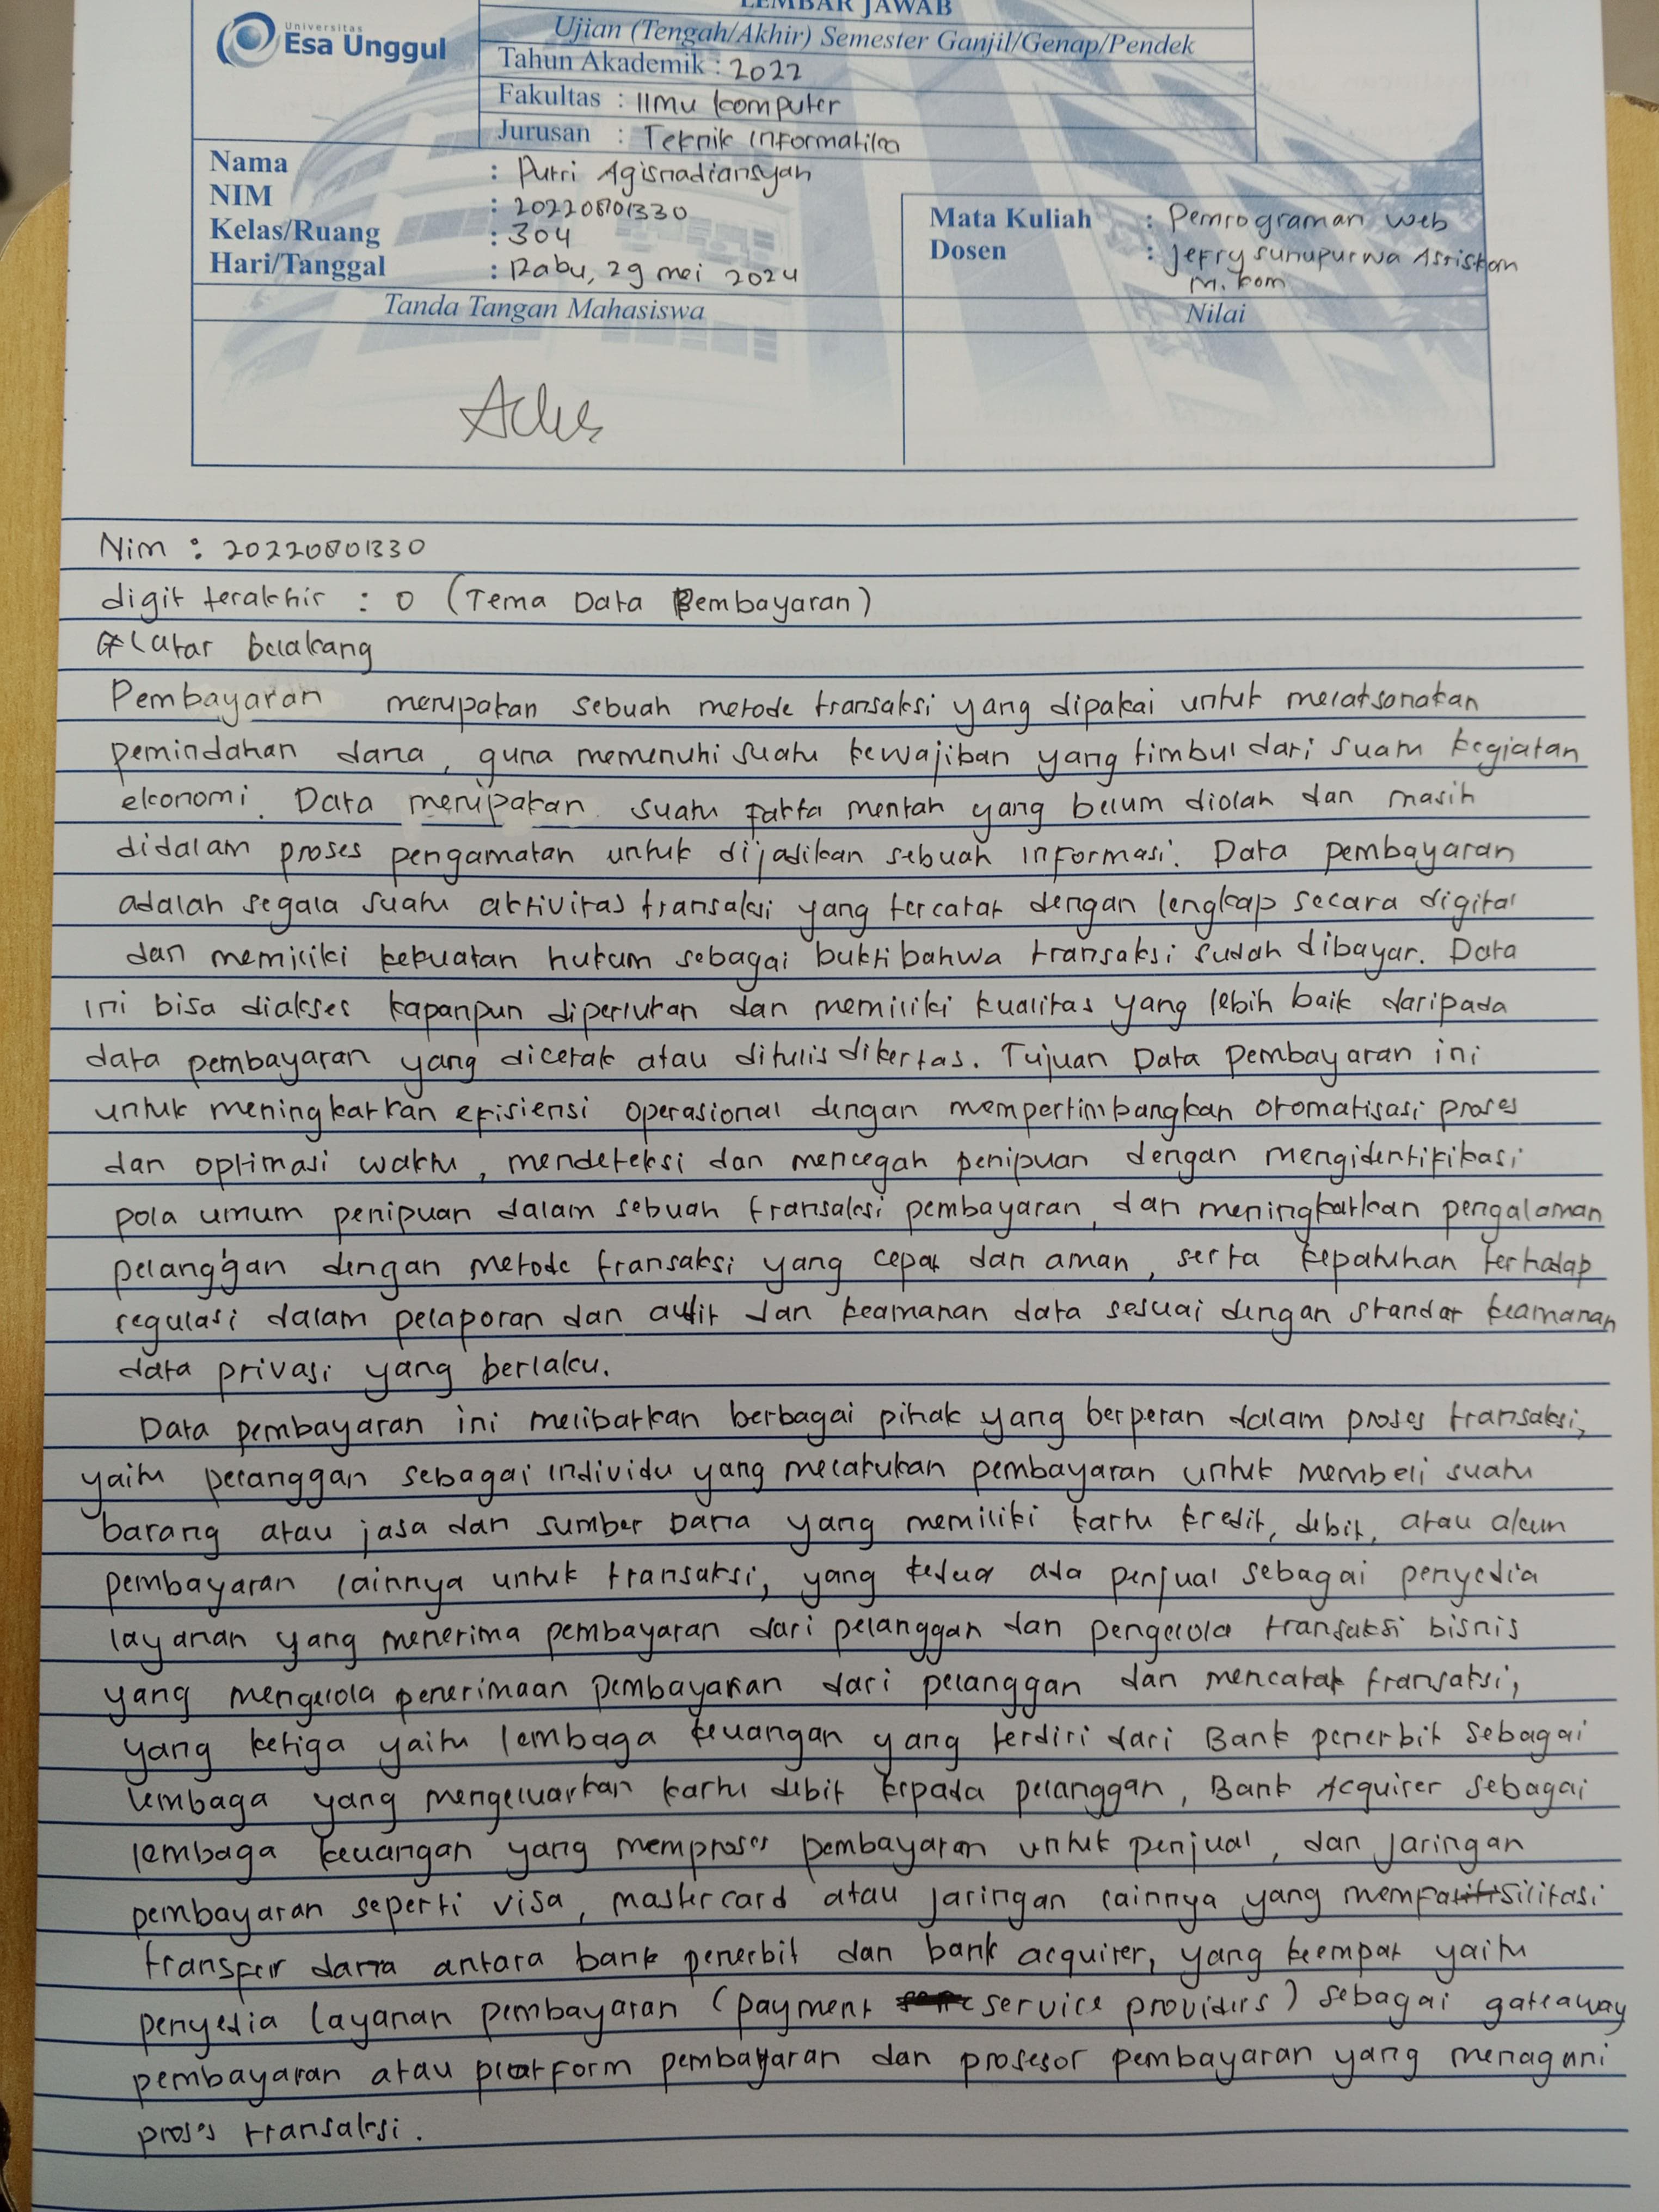 LEMBAR JAWAB
Universitas
Esa Unggul
Ujian (Tengah/Akhir) Semester Ganjil/Genap/Pendek
Tahun Akademik : 2022
Fakultas : Ilmu komputer
Jurusan : Teknik Informatika
Nama : Putri Agisnadiansyah
NIM : 20220801330
Kelas/Ruang : 304
Hari/Tanggal : Rabu, 29 mei 2024
Mata Kuliah : Pemrograman web
Dosen : Jefry sunupurwa Asri skom
M. kom
Tanda Tangan Mahasiswa
Nilai
Nim : 20220801330
digit terakhir : 0 (Tema Data Pembayaran)
* Latar belakang
Pembayaran merupakan sebuah metode transaksi yang dipakai untuk melaksanakan
pemindahan dana, guna memenuhi suatu kewajiban yang timbul dari suatu kegiatan
ekonomi. Data merupakan suatu fakta mentah yang belum diolah dan masih
didalam proses pengamatan untuk dijadikan sebuah informasi. Data pembayaran
adalah segala suatu aktivitas transaksi yang tercatat dengan lengkap secara digital
dan memiliki kekuatan hukum sebagai bukti bahwa transaksi sudah dibayar. Data
ini bisa diakses kapanpun diperlukan dan memiliki kualitas yang lebih baik daripada
data pembayaran yang dicetak atau ditulis dikertas. Tujuan Data pembayaran ini
untuk meningkatkan efisiensi operasional dengan mempertimbangkan otomatisasi proses
dan optimasi waktu, mendeteksi dan mencegah penipuan dengan mengidentifikasi
pola umum penipuan dalam sebuah transaksi pembayaran, dan meningkatkan pengalaman
pelanggan dengan metode transaksi yang cepat dan aman, serta kepatuhan terhadap
regulasi dalam pelaporan dan audit dan keamanan data sesuai dengan standar keamanan
data privasi yang berlaku.
Data pembayaran ini melibatkan berbagai pihak yang berperan dalam proses transaksi,
yaitu pelanggan sebagai individu yang melakukan pembayaran untuk membeli suatu
barang atau jasa dan sumber Dana yang memiliki kartu kredit, debit, atau akun
pembayaran lainnya untuk transaksi, yang kedua ada penjual sebagai penyedia
layanan yang menerima pembayaran dari pelanggan dan pengelola transaksi bisnis
yang mengelola penerimaan pembayaran dari pelanggan dan mencatat transaksi,
yang ketiga yaitu lembaga keuangan yang terdiri dari Bank penerbit sebagai
lembaga yang mengeluarkan kartu debit kepada pelanggan, Bank Acquirer sebagai
lembaga keuangan yang memproses pembayaran untuk penjual, dan jaringan
pembayaran seperti visa, mastercard atau jaringan lainnya yang memfasilitasi
transfer dana antara bank penerbit dan bank acquirer, yang keempat yaitu
penyedia layanan pembayaran (payment service providers) sebagai gateaway
pembayaran atau platform pembayaran dan prosesor pembayaran yang menagani
proses transaksi.